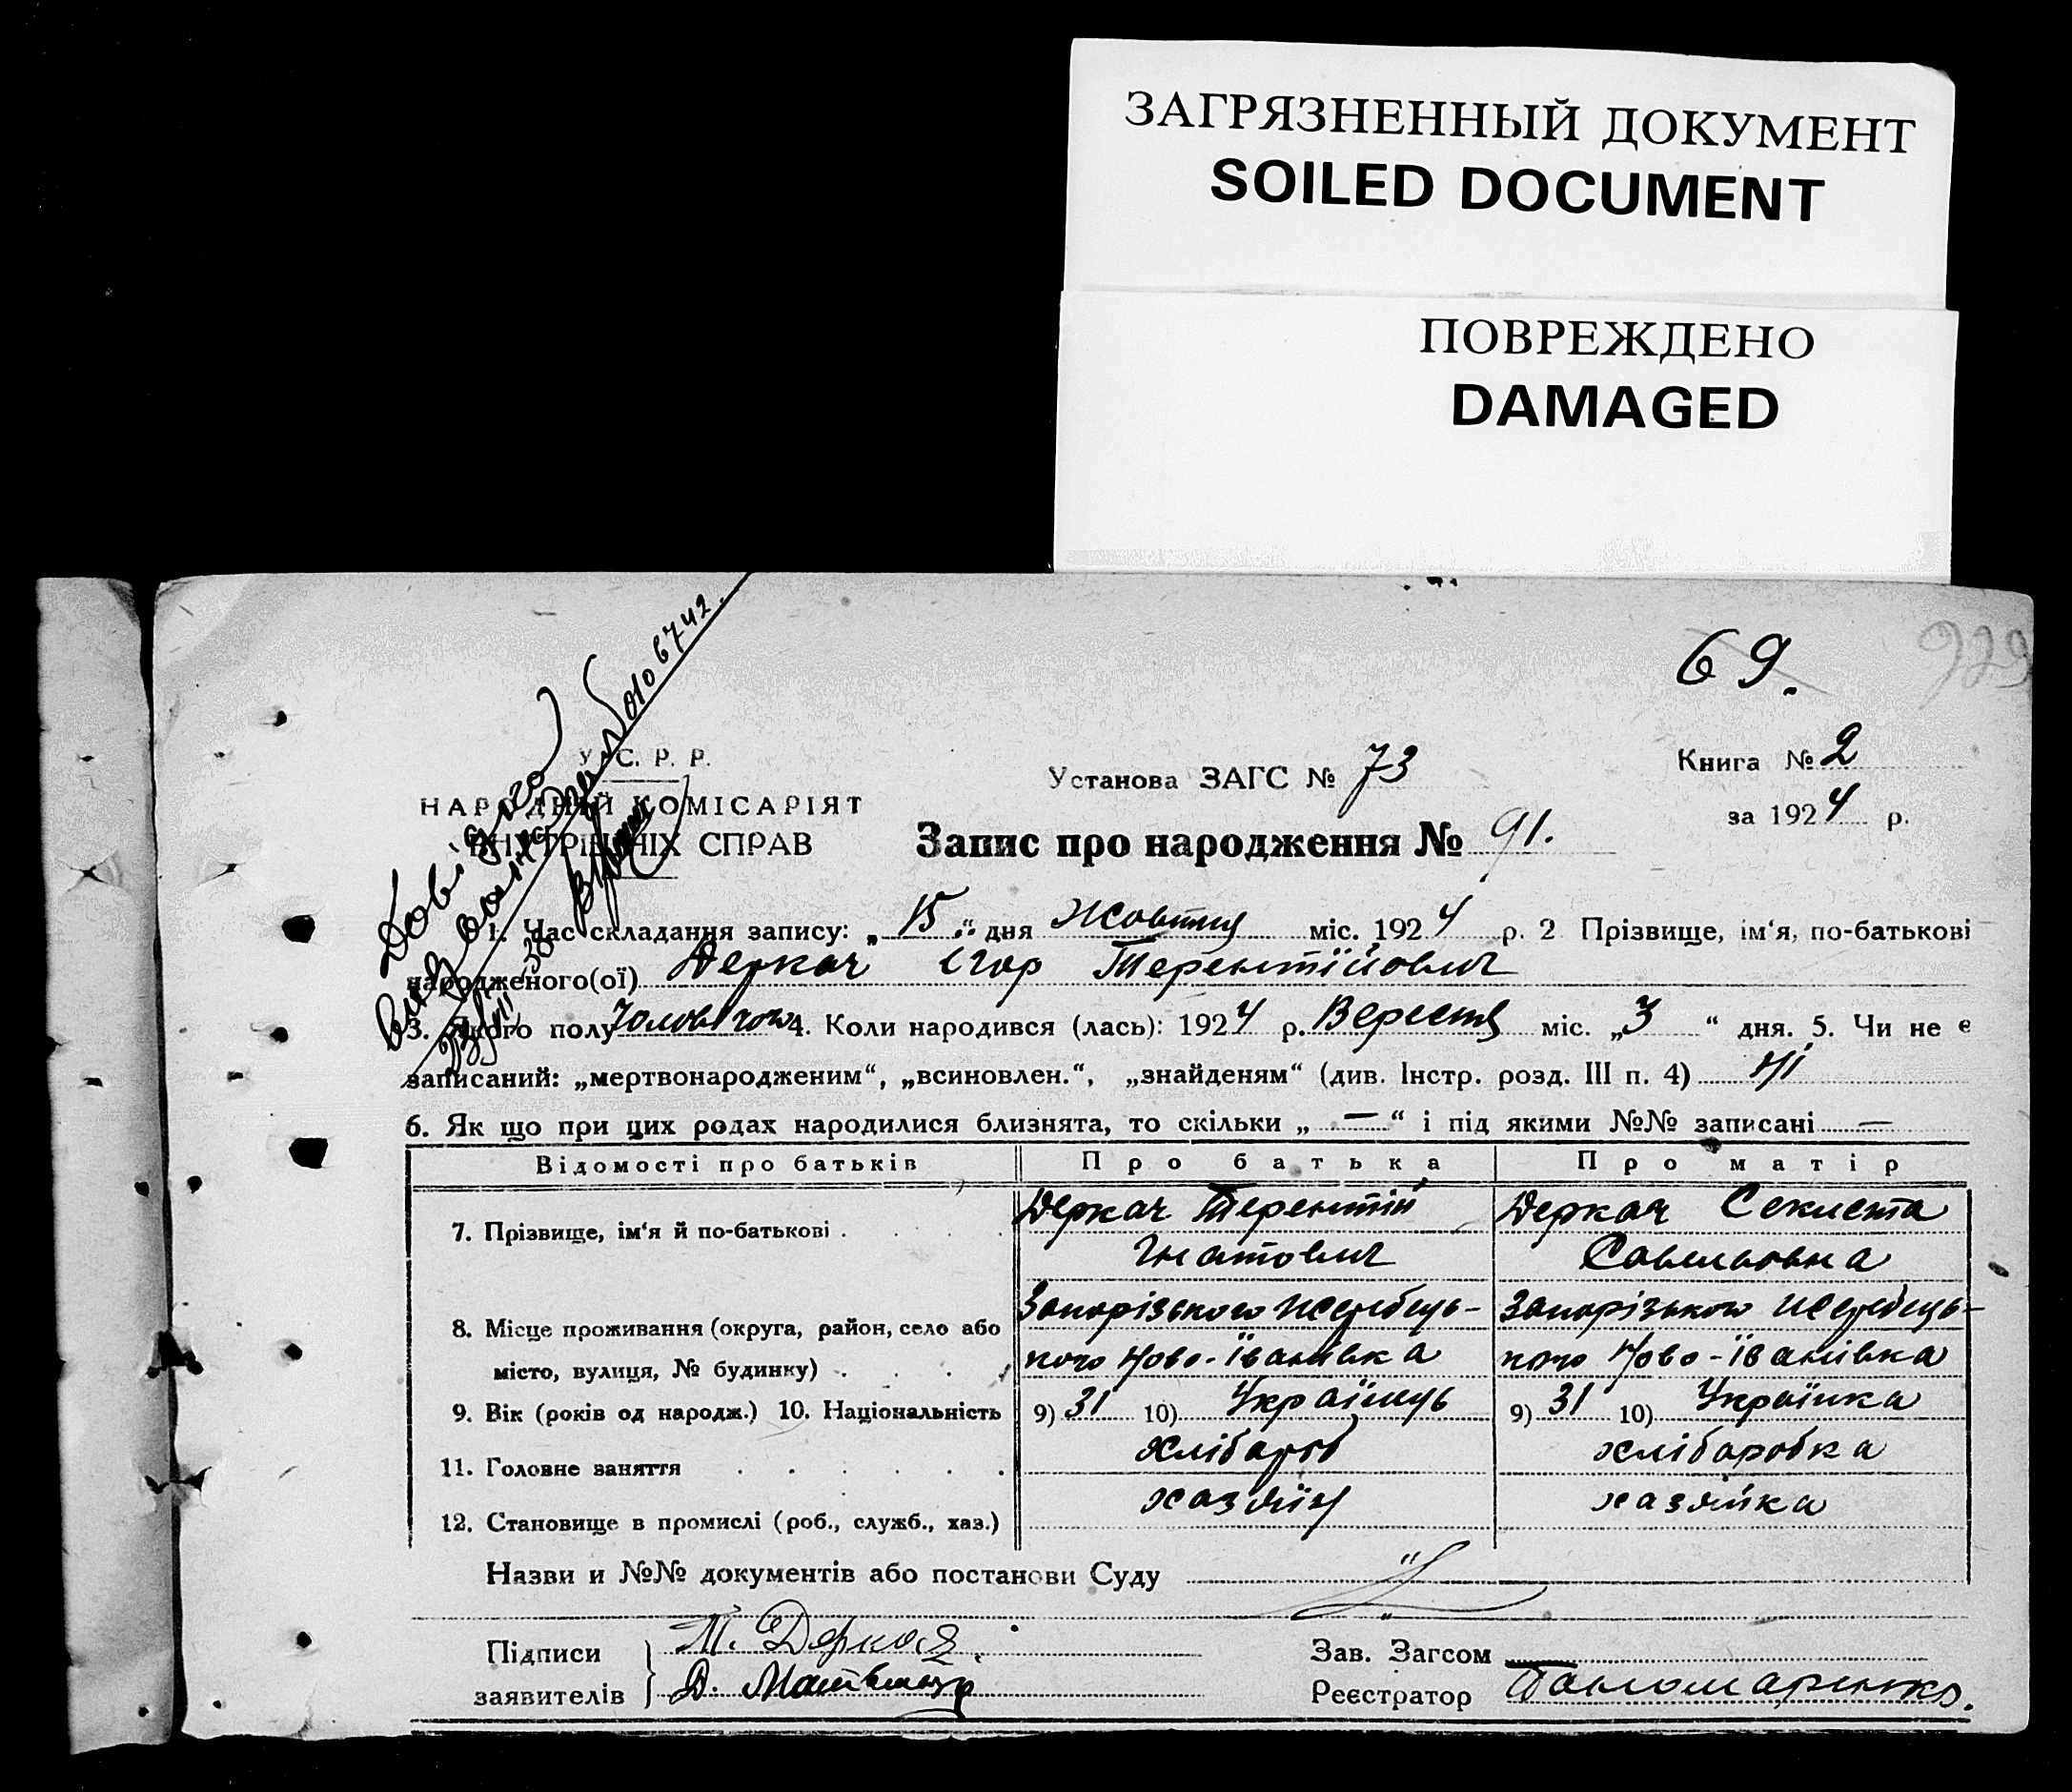 ЗАГРЯЗНЕННЫЙ ДОКУМЕНТ
SOILED DOCUMENT
ПОВРЕЖДЕНО
DAMAGED
69.
929
У. С. Р. Р.
НАРОДНІЙ КОМІСАРІЯТ
ВНУТРІШНІХ СПРАВ
Установа ЗАГС № 73
Книга № 2
за 1924 р.
Запис про народження № 91.
1. Час складання запису: „15“ дня Жовтня міс. 1924 р. 2 Прізвище, ім‘я, по-батькові
народженого(ої) Деркач Ігор Терентійович
3. Якого полу Чоловічого 4. Коли народився (лась): 1924 р. Вересня міс. „3“ дня. 5. Чи не є
записаний: „мертвонародженим“, „всиновлен.“, „знайденям“ (див. Інстр. розд. III п. 4) Ні
6. Як що при цих родах народилися близнята, то скільки „ — “ і під якими №№ записані —
Відомості про батьків Про батька Про матір
7. Прізвище, ім‘я й по-батькові Деркач Терентій Деркач Секлета
Гнатович Савельовна
Запорізького Жеребець- Запорізького Жеребець-
8. Місце проживання (округа, район, село або
місто, вулиця, № будинку) кого Ново-Їванівка кого Ново-Їванівка
9. Вік (років од народж.) 10. Національність 9) 31 10) Україньць 9) 31 10) Українка
11. Головне заняття хлібароб хлібаробка
12. Становище в промислі (роб., служб., хаз.) хазяїн хазяйка
Назви и №№ документів або постанови Суду
Підписи
заявителів
М. Деркач.
Д.
Зав. Загсом
Реєстратор Панломаренко.